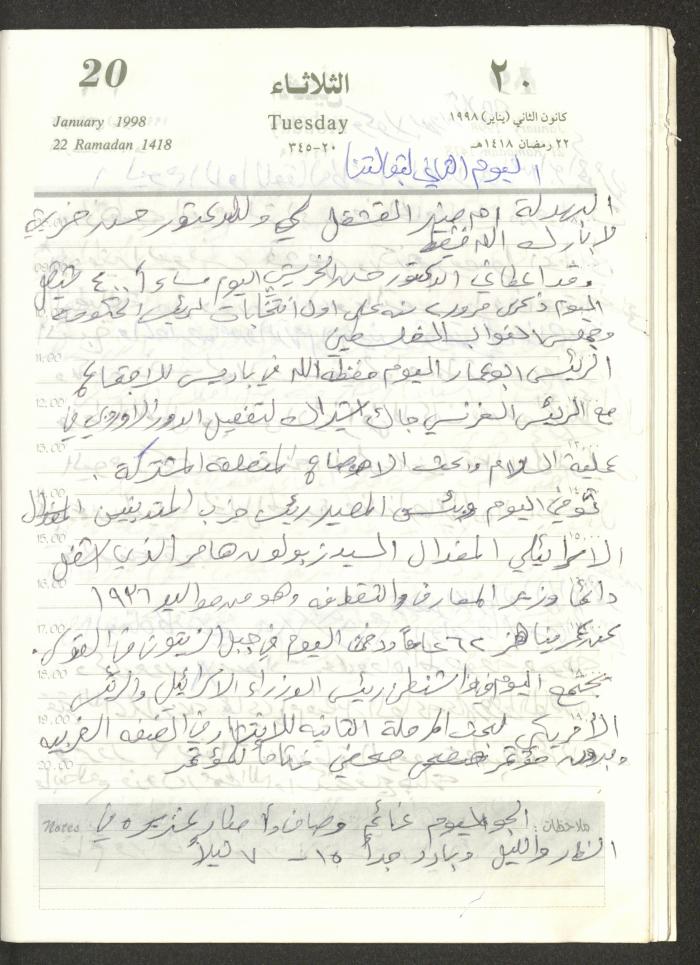 20
الثلاثاء
٢٠
January 1998
Tuesday
كانون الثاني (يناير) ١٩٩٨
22 Ramadan 1418
٢٠-٣٤٥
٢٢ رمضان ١٤١٨هـ
اليوم الثاني
البهدلة ام صبر القشقل لي وللدكتور حسن
لا بارك الله فيه
وقد اعطاني الدكتور حسن اليوم مساءاً ٤٠٠ شيقل
اليوم ذكرى مرور سنه على اول انتخابات لرئيس الحكومة
النواب الفلسطين
11.00
الرئيس ابو عمار اليوم حفظه الله في باريس للاجتماع
12.00
مع الرئيس الفرنسي جاك شيراك لتفعيل الدور الاوروبي في
13.00
عملية السلام وبحث الاوضاع المتعلقه المشتركة .
14.00
توفي اليوم رئيس حزب المتدينين
15.00
الاسرائيلي المفدال السيد زبولون هامر الذي شغل
16.00
دائما وزير المعارف والثقافه وهو من مواليد ١٩٣٦
17.00
عن عمر يناهز ٦٢ عاماً ودفن اليوم في جبل الزيتون في القدس .
18.00
يجتمع اليوم في واشنطن رئيس الوزراء الاسرائيلي والرئيس
19.00
الأمريكي لبحث المرحلة الثانيه للانتشار في الضفه الغربيه
20.00
وبدون مؤتمر صحفي ختاماً للمؤتمر
ملاحظات : الجو اليوم غائم وصافي وأمطار غزيره في Notes
النهار والليل وبارد جداً ١٥ - ٧ ليلاً